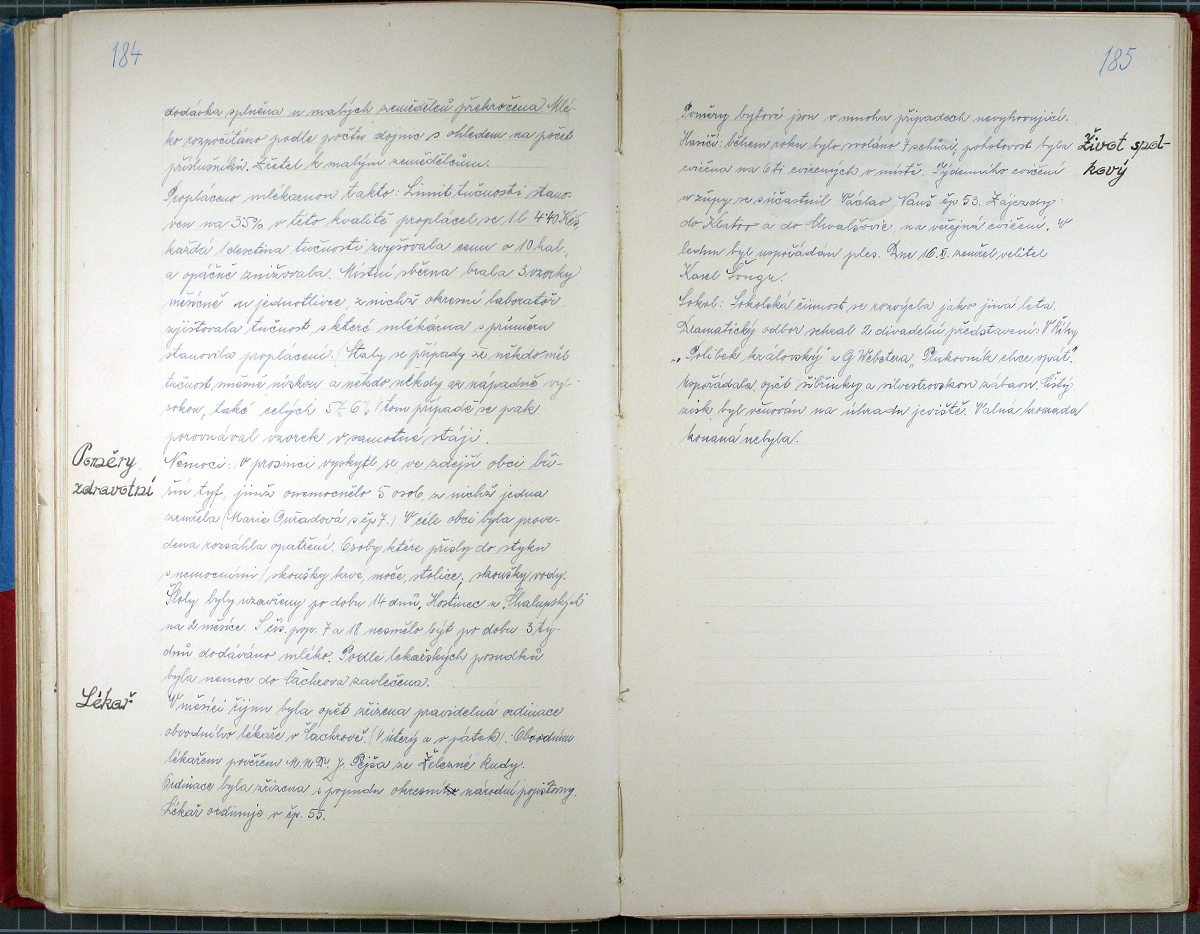 184
dodávka splněna u malých zemědělců překročena. Mlé-
ko rozpočítáno podle počtu dojnic s ohledem na počet
příslušníků. Zřetel k malým zemědělcům.
Propláceno mlékárnou takto: Limit tučnosti stano-
ven na 35% v této kvalitě proplácel se 1 l 4·40 Kčs,
každá 1 desetina tučnosti zvyšovala cenu o 10 hal.,
a opačně znižovala. Místní sběrna brala 3 vzorky
měsíčně u jednotlivce z nichž okresní laboratoř
zjišťovala tučnost s které mlékárna s průměru
stanovila proplacení. (Staly se případy že někdo měl
tučnost směšně nízkou a někdo někdy až nápadně vy-
sokou, také celých 5% 6% V tom případě se pak
porovnával vzorek v samotné stáji.
Poměry
zdravotní
Nemoci: V prosinci vyskytl se ve zdejší obci bři-
šní tyf, jímž onemocnělo 5 osob, z nichž jedna
zemřela (Marie Ouřadová s čp 7.) V celé obci byla prove-
dena rozsáhla opatření. Osoby které přišly do styku
s nemocnými (zkoušky krve, moče, stolice, zkoušky vody.
Školy byly uzavřeny po dobu 14 dnů, Hostinec u Chalupských
na 2 měsíce. S čís. pop. 7 a 18 nesmělo být po dobu 3 tý-
dnů dodáváno mléko. Podle lékařských posudků
byla nemoc do Čachrova zavlečena.
Lékař
V měsíci říjnu byla opět zřízena pravidelná ordinace
obvodního lékaře v Čachrově. (V úterý a v pátek). Obvodním
lékařem pověřen M.U.Dr. J. Pejša ze Železné Rudy.
Ordinace byla zřízena s popudu okresní národní pojišťovny.
Lékař ordinuje v čp. 55.
185
Poměry bytové jsou v mnoha případech nevyhovující.
Život spol-
kový
Hasiči: během roku bylo svoláno 7 schůzí, pohotovost byla
cvičena na 6ti cvičeních v místě. Týdenního cvičení
u župy se súčastnil Václav Vauš čp 53. Zájezdy:
do Klatov a do Chvalšovic na veřejná cvičení. V
lednu byl uspořádán ples. Dne 16. X. zemřel velitel
Karel Šonga.
Sokol: Sokolská činnost se rozvýjela jako jiná léta.
Dramatický odbor sehrál 2 divadelní představení:
"Polibek královský" a G Webstera "Plukovník chce spát".
Uspořádala opět šibřinky a silvestrovskou zábavu čistý
zisk byl věnován na úhradu jeviště. Valná hromada
konaná nebyla.